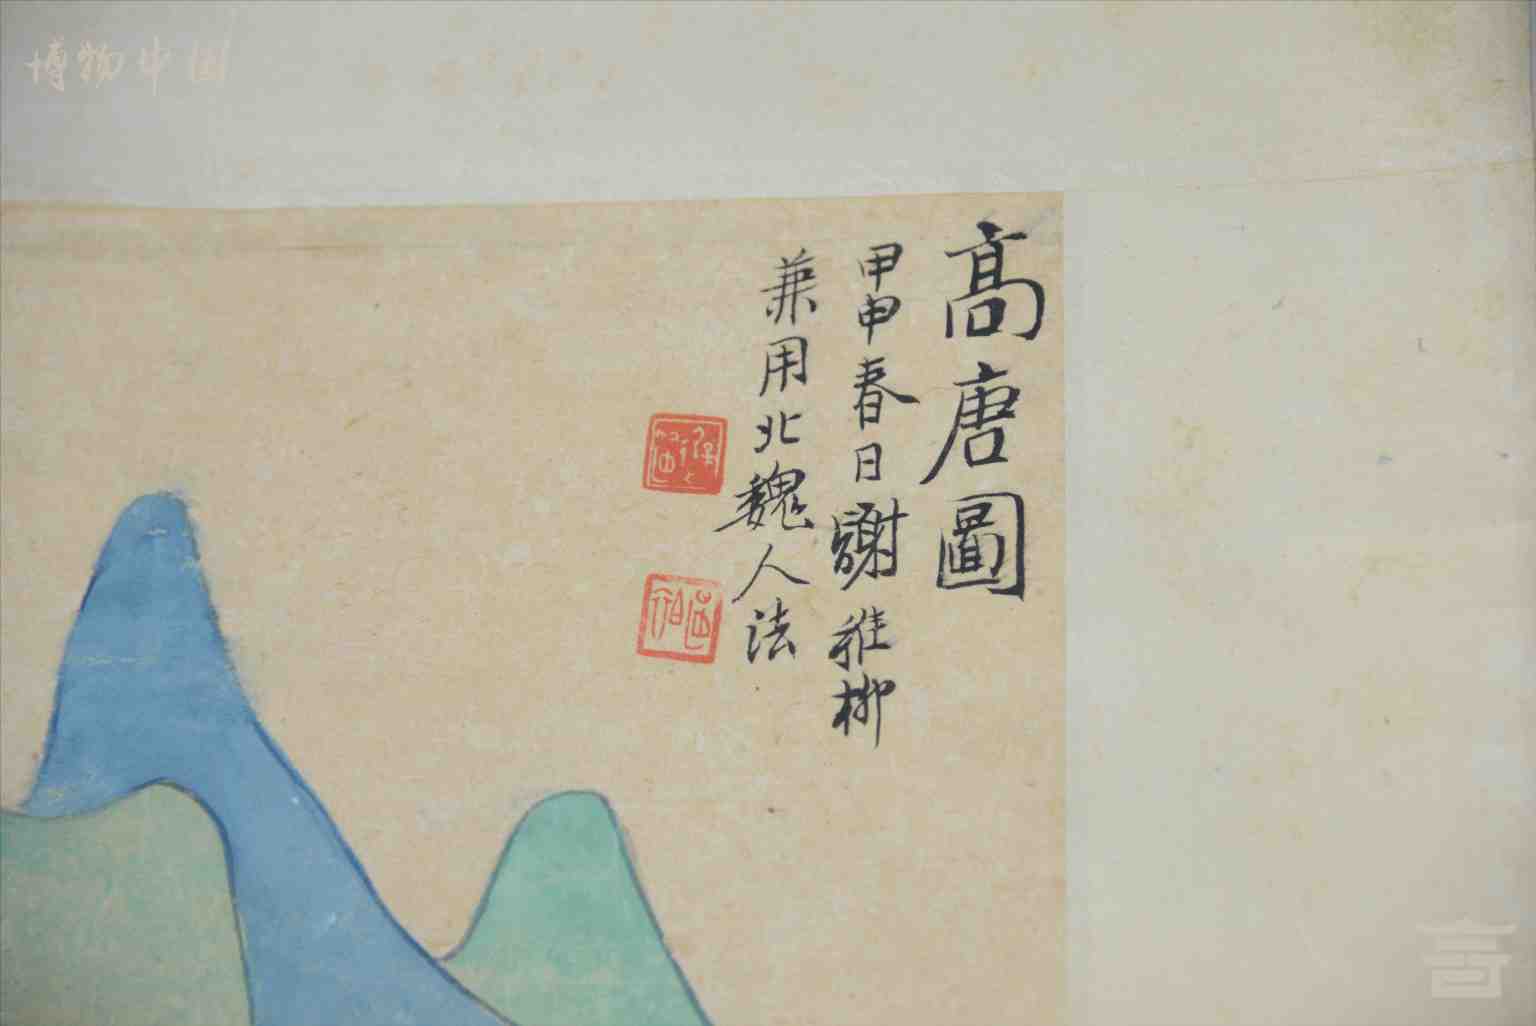 博物中国
高唐圖
甲申春日謝稚柳
兼用北魏人法